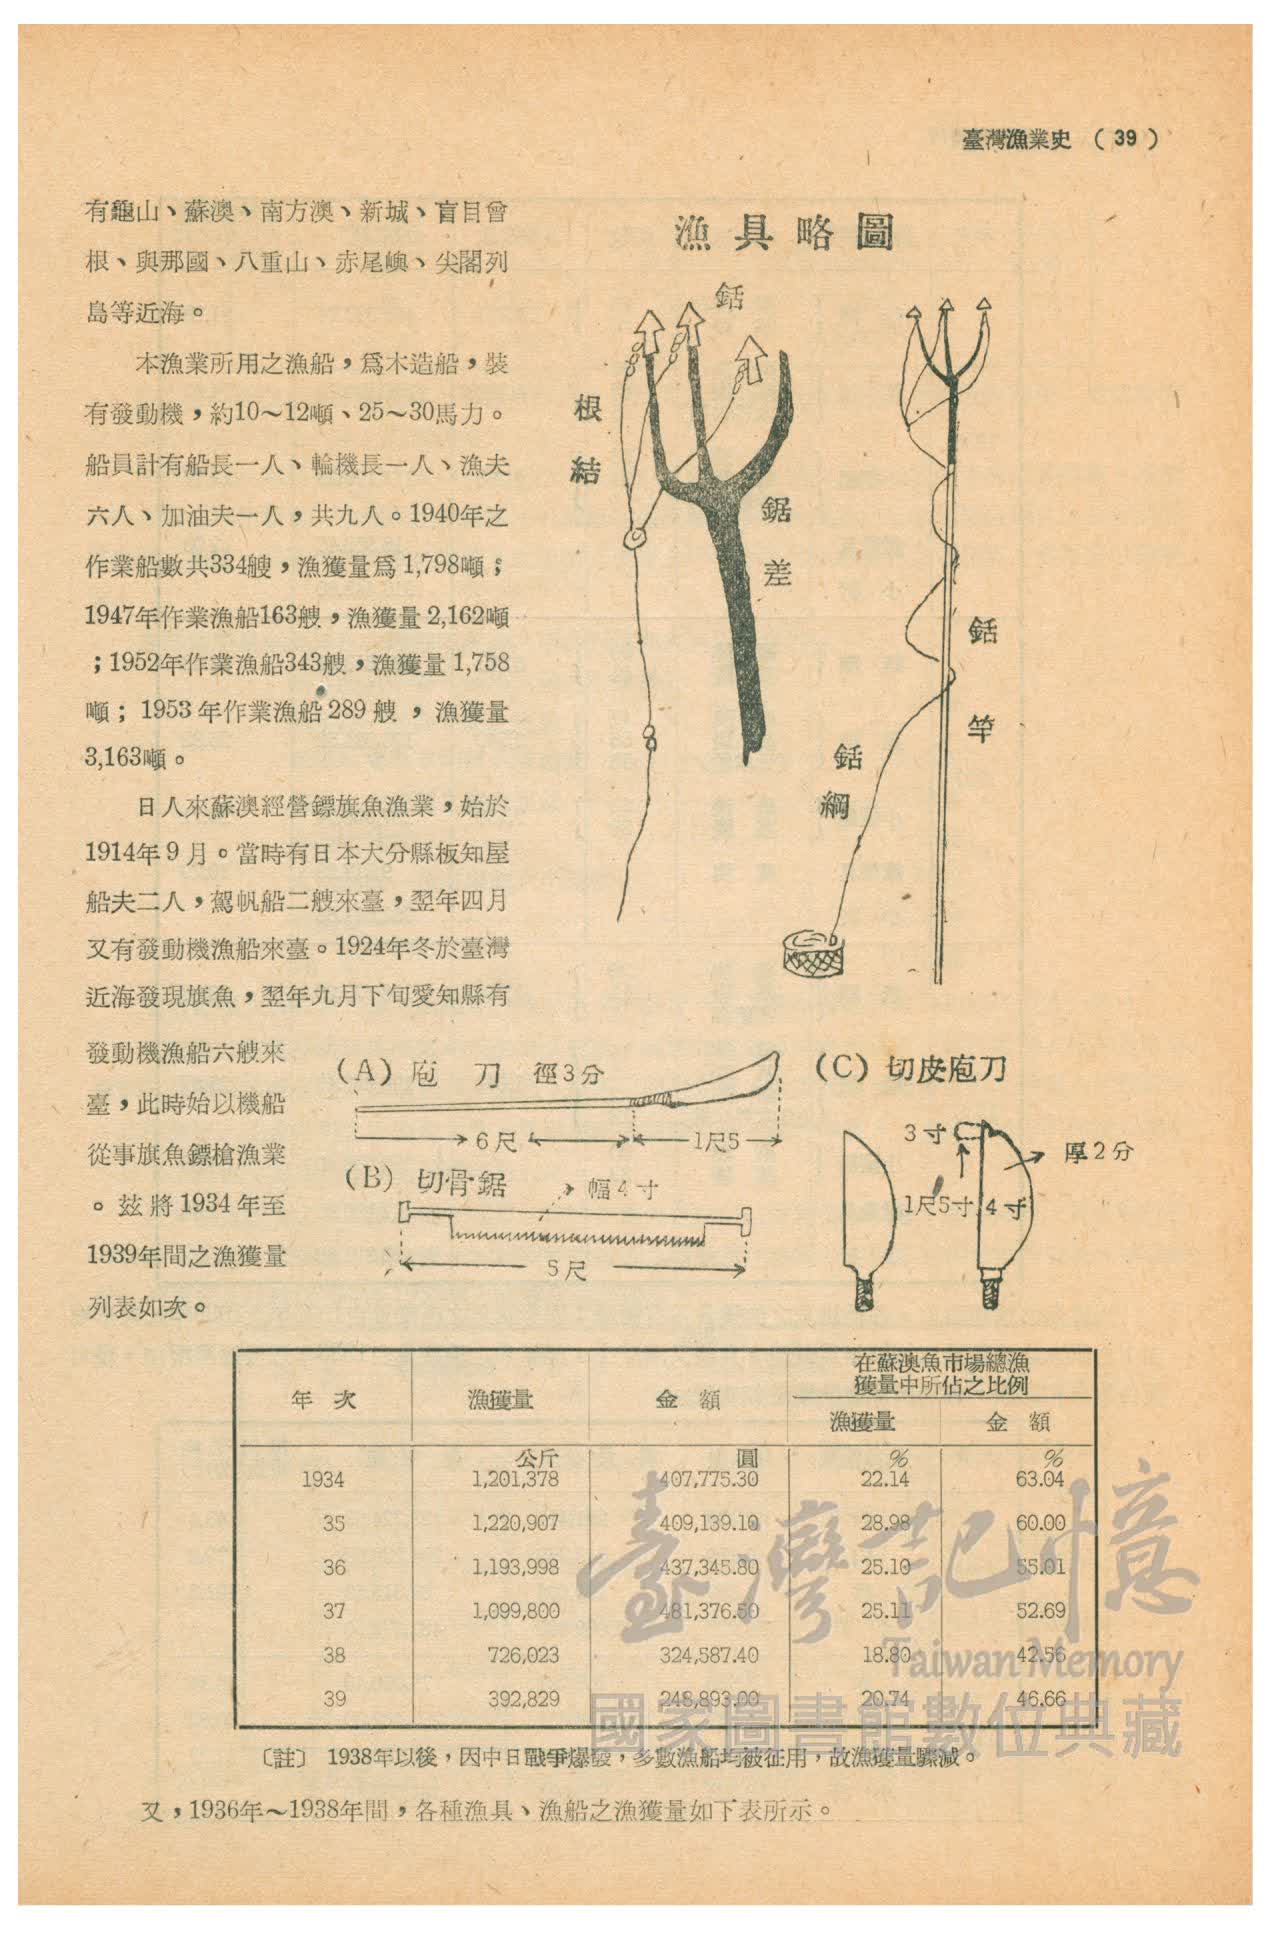 臺灣漁業史 ( 39 )
有龜山、蘇澳、南方澳、新城、盲目曾
根、與那國、八重山、赤尾嶼、尖閣列
島等近海。
本漁業所用之漁船，爲木造船，裝
有發動機，約10～12噸、25～30馬力。
船員計有船長一人、輪機長一人、漁夫
六人、加油夫一人，共九人。1940年之
作業船數共334艘，漁獲量爲1,798噸；
1947年作業漁船163艘，漁獲量2,162噸
；1952年作業漁船343艘，漁獲量1,758
噸；1953年作業漁船289艘，漁獲量
3,163噸。
日人來蘇澳經營鏢旗魚漁業，始於
1914年9月。當時有日本大分縣板知屋
船夫二人，駕帆船二艘來臺，翌年四月
又有發動機漁船來臺。1924年冬於臺灣
近海發現旗魚，翌年九月下旬愛知縣有
發動機漁船六艘來
臺，此時始以機船
從事旗魚鏢槍漁業
。茲將1934年至
1939年間之漁獲量
列表如次。
漁具略圖
銛
根結
鋸差
銛竿
銛綱
(A) 庖刀 徑3分
6尺 1尺5
(B) 切骨鋸 幅4寸
5尺
(C) 切皮庖刀
3寸 厚2分
1尺5寸 4寸
年次 漁獲量 金額 在蘇澳魚市場總漁
獲量中所佔之比例
漁獲量 金額
公斤 圓 % %
1934 1,201,378 407,775.30 22.14 63.04
35 1,220,907 409,139.10 28.98 60.00
36 1,193,998 437,345.80 25.10 55.01
37 1,099,800 481,376.50 25.11 52.69
38 726,023 324,587.40 18.80 42.56
39 392,829 248,893.00 20.74 46.66
〔註〕 1938年以後，因中日戰爭爆發，多數漁船均被征用，故漁獲量驟減。
又，1936年～1938年間，各種漁具、漁船之漁獲量如下表所示。
臺灣記憶
Taiwan Memory
國家圖書館數位典藏